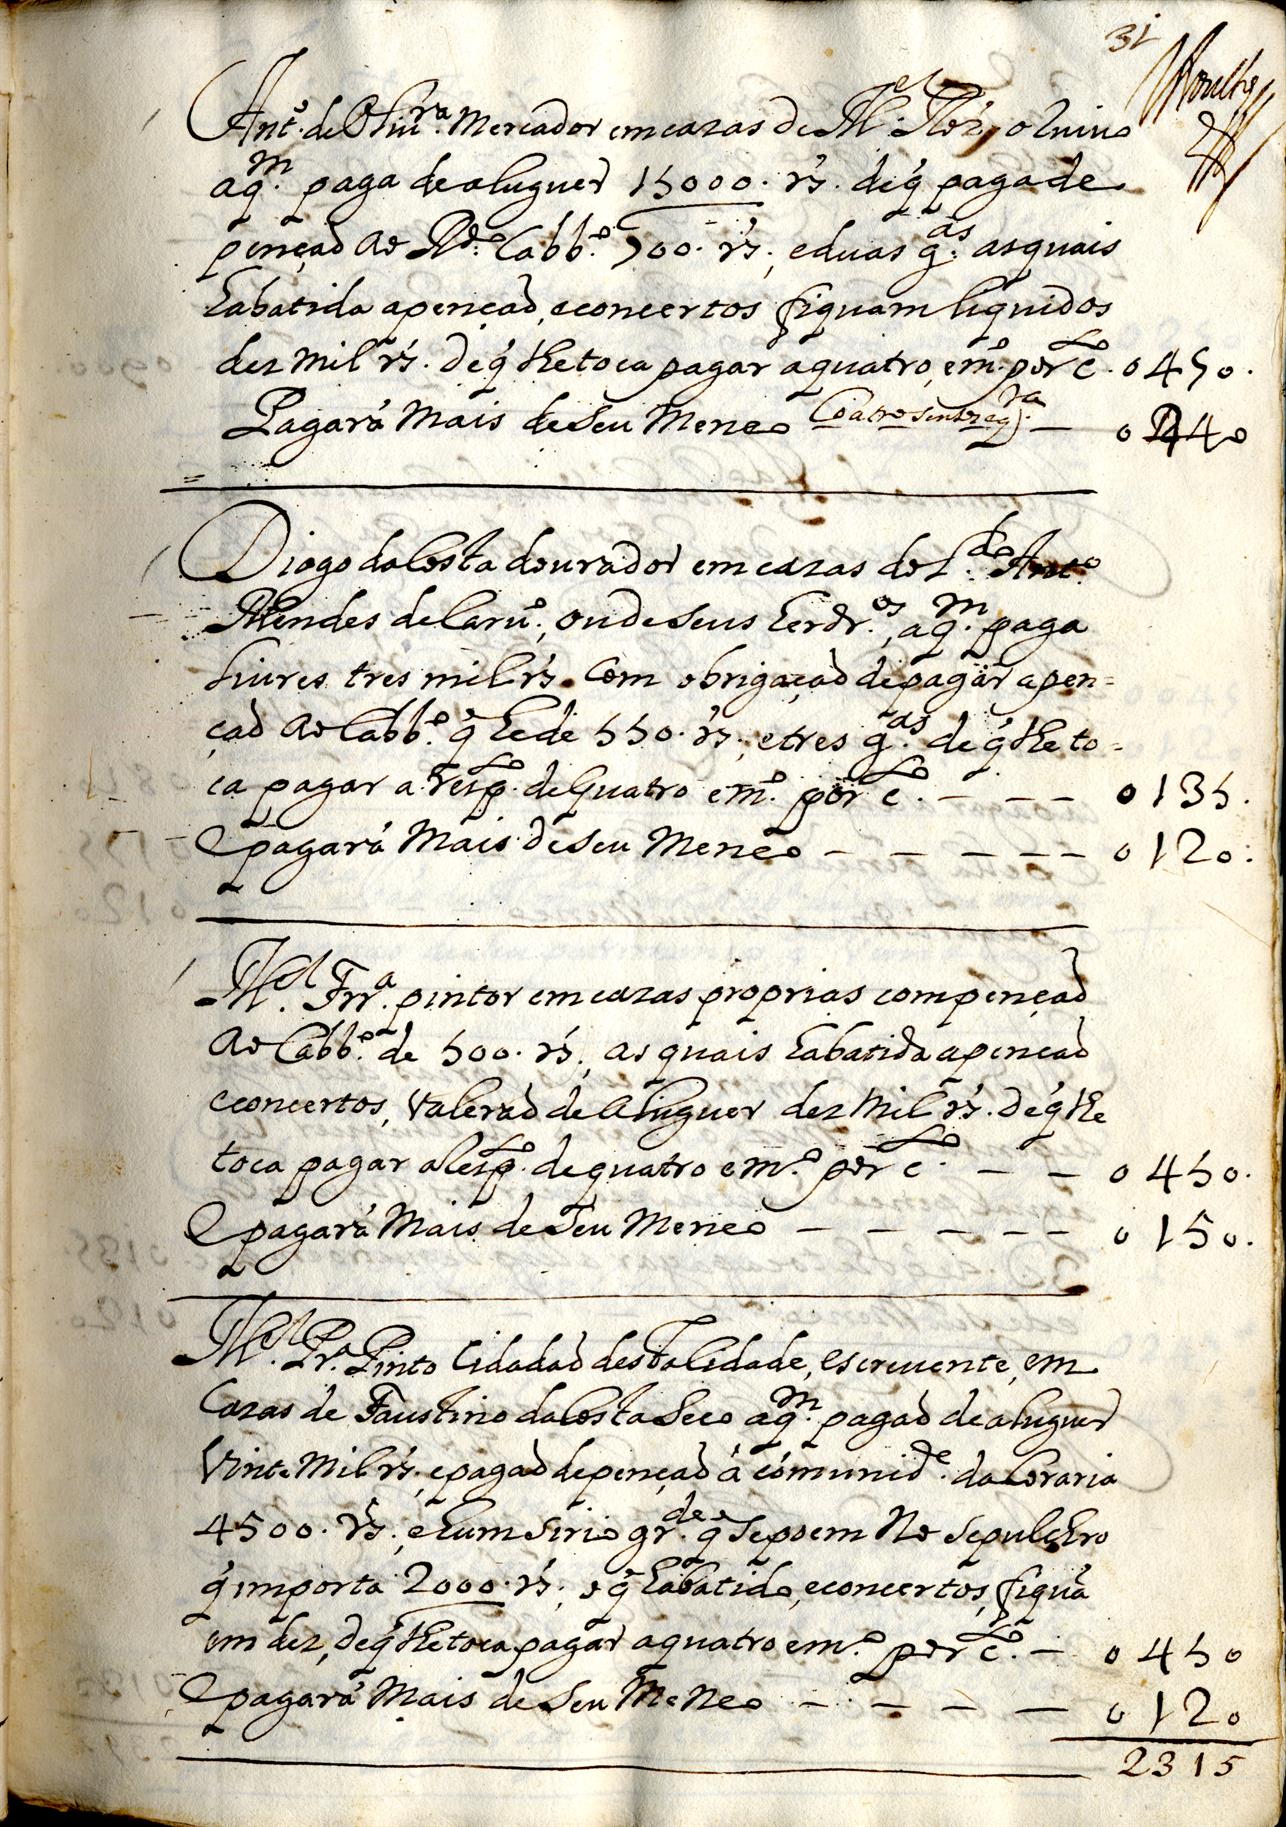 31
Ant.º de Oliur.ª Mercador em cazas de M.el Roiz oluin.º
aq.m paga de aluguer 15000. rs. de q̃ paga de
pençaõ ao Rd.º Cabb.º 500. rs., e duas g.as as quais
habatida a pençaõ, e concertos fiquam liquidos
dez mil rs. de q̃ lhe toca pagar a quatro, e m.º por c.to 0450.
Pagará Mais de Seu Meneo — 0440
Diogo da Costa dourador em cazas do L.do Ant.º
Mendes de Caru.º, ou de Seus herdr.os, aq.m paga
liures tres mil rs. Com obrigaçaõ de pagar a pen=
çaõ ao Cabb.º q̃ he de 550. rs., e tres g.as de q̃ lhe to=
ca pagar a resp.to de Quatro e m.º por c.to - - - 0135.
E pagará Mais de Seu Meneo - - - - - 0120.
M.el Frr.ª pintor em cazas proprias com pençaõ
ao Cabb.º de 500. rs., as quais habatida a pençaõ
e concertos, Valeraõ de Aluguer dez Mil rs. de q̃ lhe
toca pagar a Resp.to de quatro e m.º por c.to - - 0450.
E pagará Mais de Seu Meneo - - - - - 0150.
M.el Pr.ª Pinto Cidadaõ desta Cidade, escreuente, em
Cazas de Faustino da Costa Seco aq.m pagaõ de aluguer
Vinte Mil rs., e pagaõ de pençaõ á comunid.e da Coraria
4500. rs., e hum sirio gr.de q̃ se poem No sepulchro
q̃ importa 2000. rs., o q̃ habatido, e concertos, fiquã
em dez, de q̃ lhe toca pagar a quatro e m.º por c.to - 0450
E pagará Mais de Seu Meneo - - - - 0120
2315